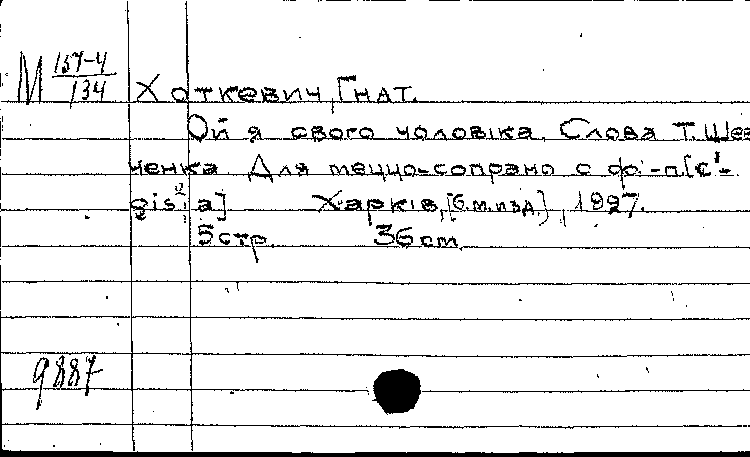 М 157-4/134
Хоткевич, Гнат.
Ой я свого чоловіка. Слова Т. Шев
ченка. Для меццо-сопрано с ф.-п. [c¹-
gis² a]      Харків, [б.м.изд.], 1927.
5 стр.      36 cm.
9887